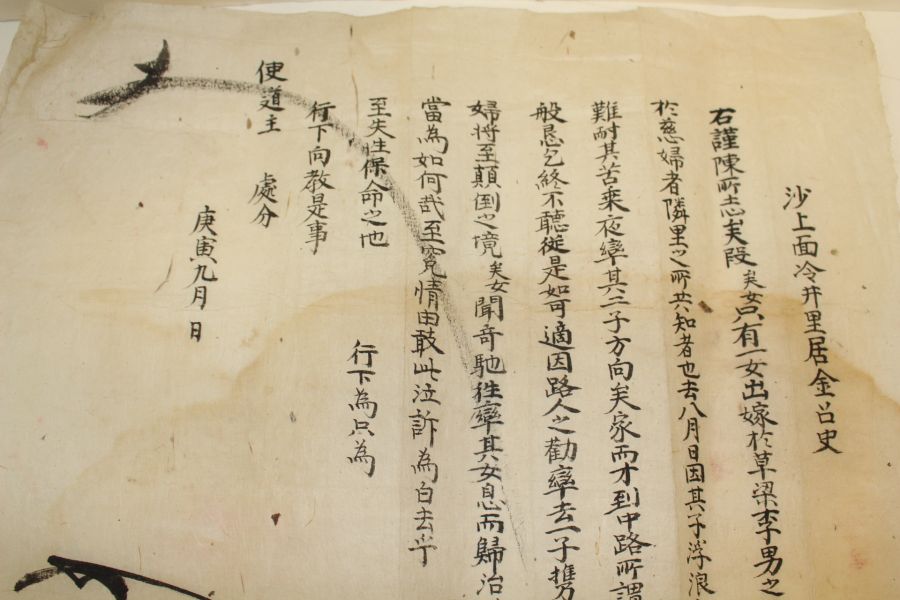 沙上面冷井里居金召史
右謹陳所志矣段矣女只有一女出嫁於草梁李男之
於慈婦者隣里之所共知者也去八月日因其子浮浪
難耐其苦乘夜率其二子方向矣家而才到中路所謂
般恳乞終不聽從是如可適因路人之勸率去一子携
婦將至顛倒之境矣女聞奇馳往率其女息而歸治
當為如何哉至寃情由敢此泣訴為白去乎
至失性保命之地 行下為只為
行下向教是事
使道主 處分
庚寅九月 日